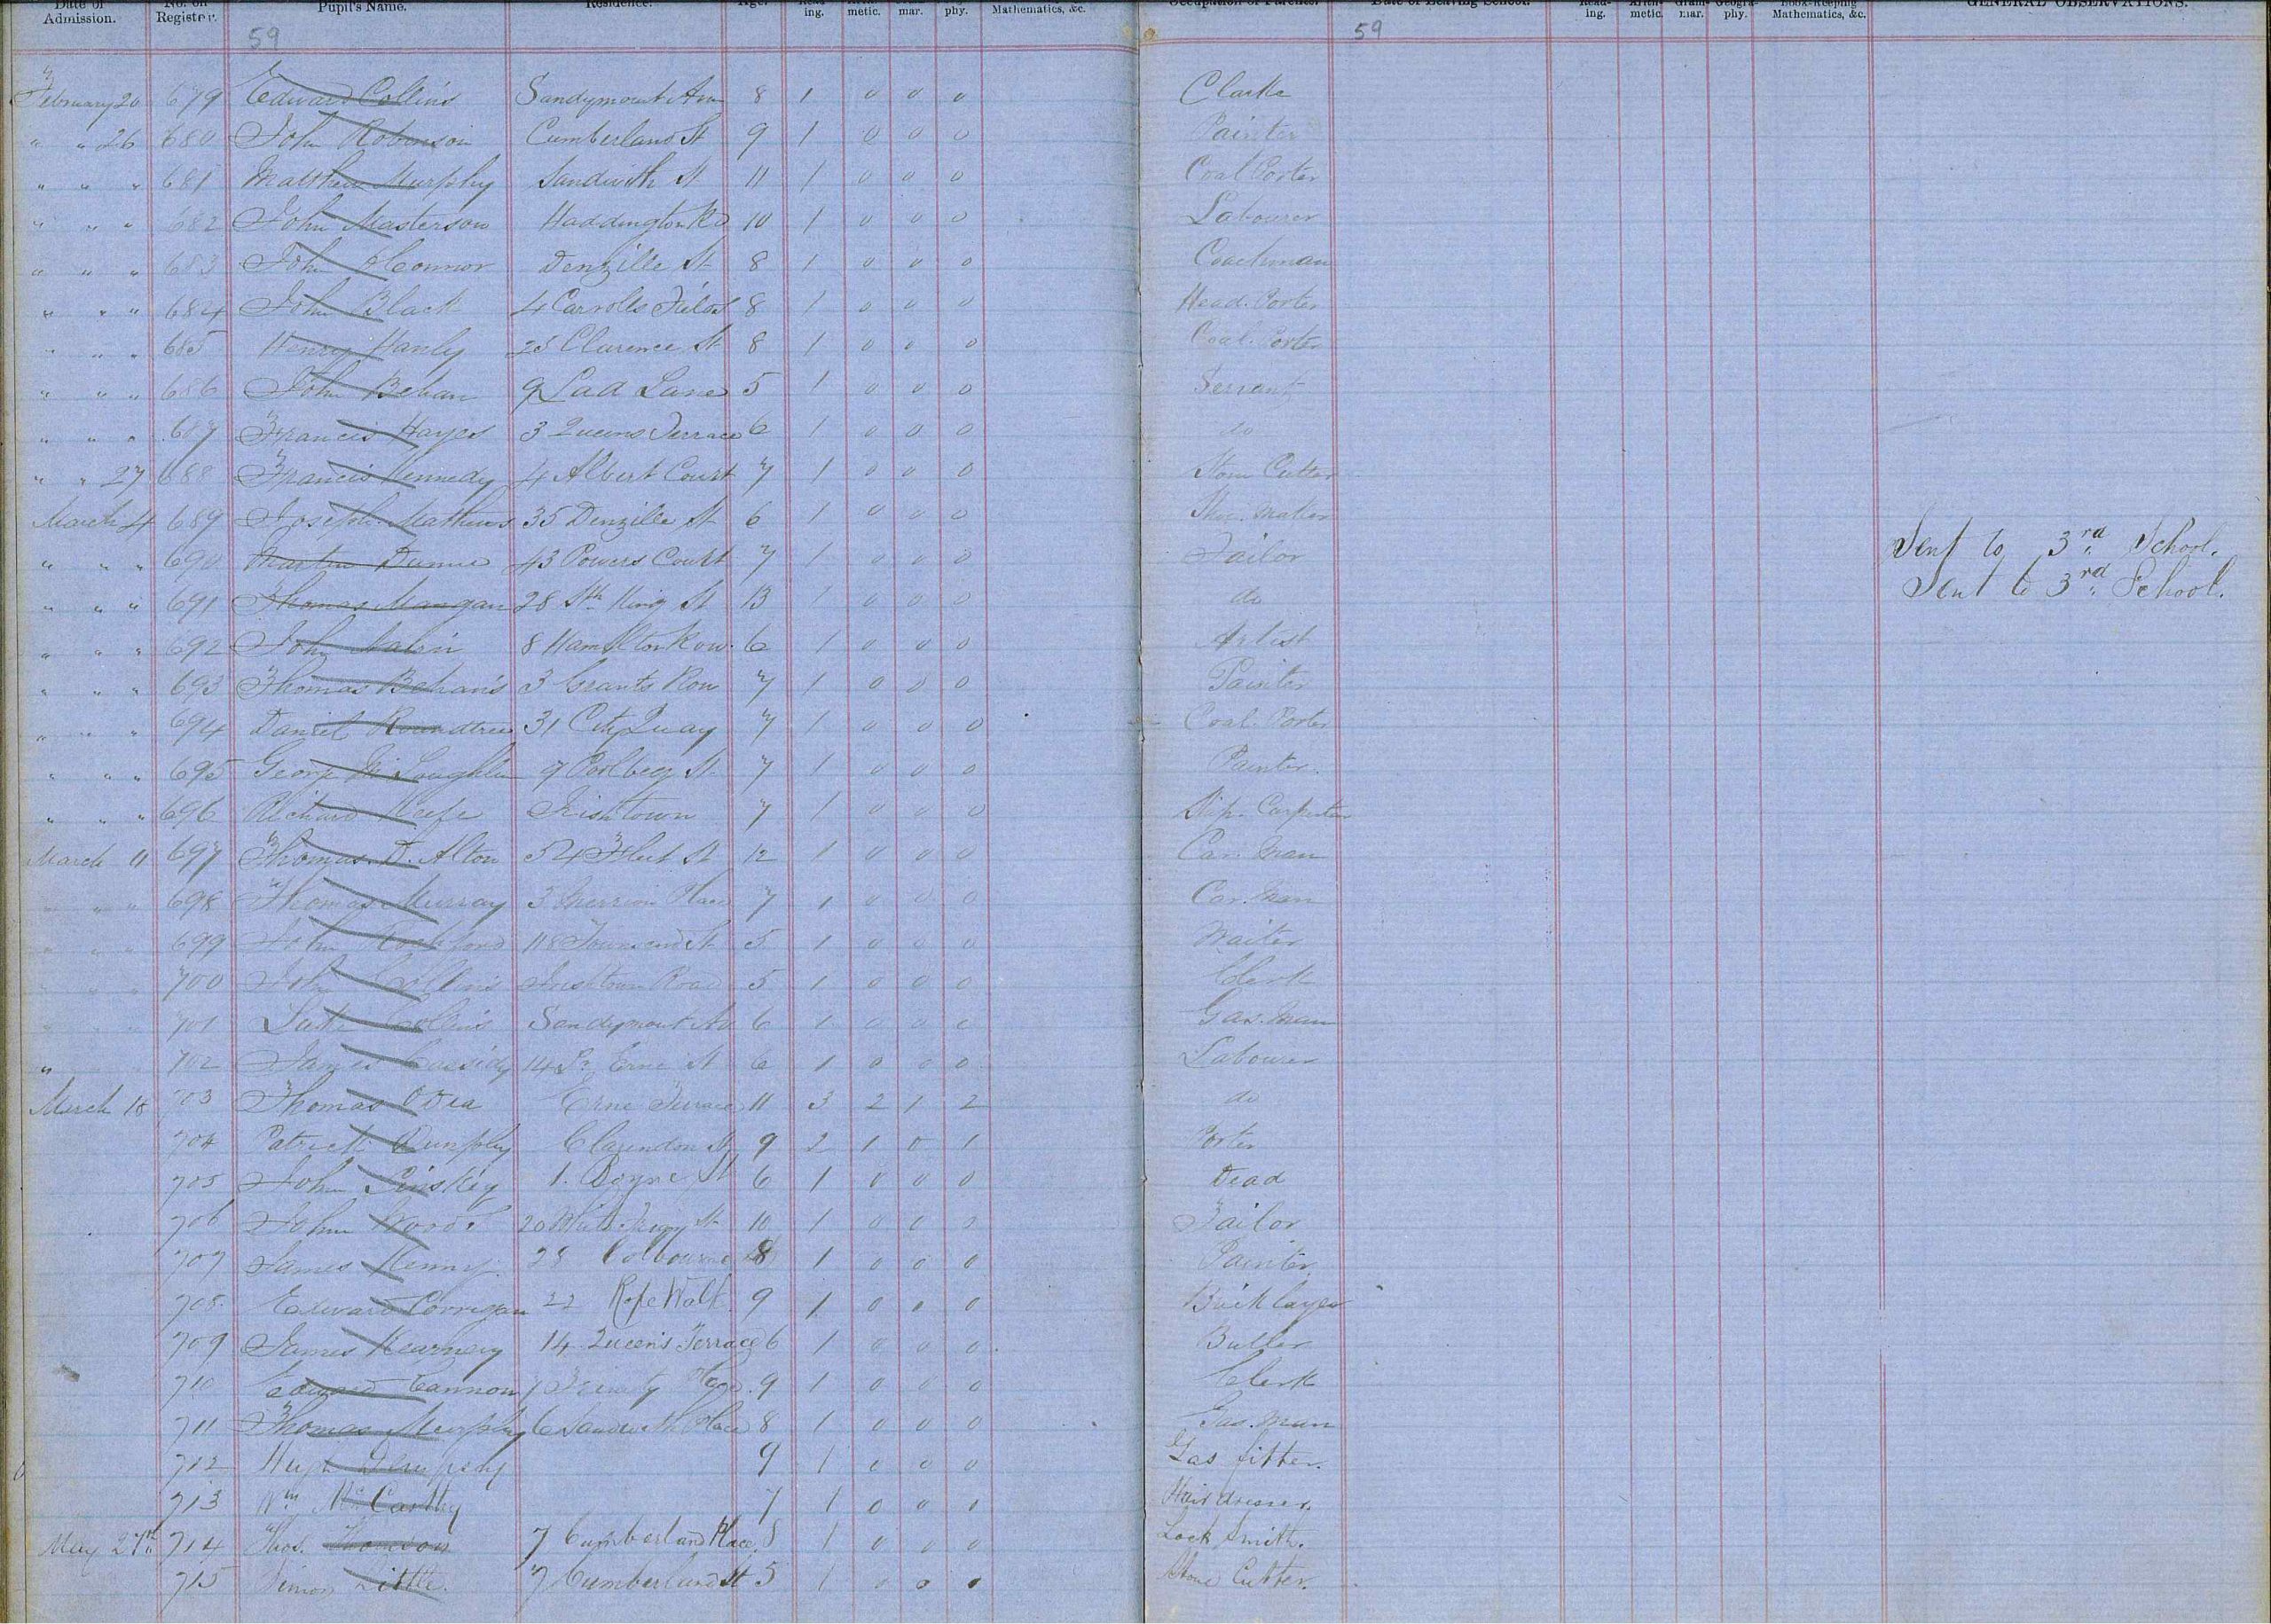 Date of Admission. No. on Register. Pupil's Name. Residence. Age. Read-ing. Arith-metic. Gram-mar. Geogra-phy. Mathematics, &c. Occupation of Parents. Date of Leaving School. Read-ing. Arith-metic. Gram-mar. Geogra-phy. Book-Keeping Mathematics, &c. GENERAL OBSERVATIONS.
59 59
February 20 679 Edward Collins Sandymount Ave 8 1 0 0 0 Clarke
" " 26 680 John Robinson Cumberland St 9 1 0 0 0 Painter
" " " 681 Matthew Murphy Sandwith St 11 1 0 0 0 Coal Porter
" " " 682 John Masterson Haddington Rd 10 1 0 0 0 Labourer
" " " 683 John O'Connor Denzille St 8 1 0 0 0 Coachman
" " " 684 John Black 4 Carrolls Field 8 1 0 0 0 Head. Porter
" " " 685 Henry Hanly 25 Clarence St 8 1 0 0 0 Coal. Porter
" " " 686 John Behan 9 Lad Lane 5 1 0 0 0 Servant
" " " 687 Francis Hayes 3 Queens Terrace 6 1 0 0 0 do
" " 27 688 Francis Kennedy 4 Albert Court 7 1 0 0 0 Stone Cutter
March 4 689 Joseph Mathews 35 Denzille St 6 1 0 0 0 Shoe. Maker
" " " 690 Martin Dunne 43 Powers Court 7 1 0 0 0 Tailor Sent to 3rd. School.
" " " 691 Thomas Mangan 28 Sth King St 13 1 0 0 0 do Sent to 3rd. School.
" " " 692 John 8 Hamilton Row. 6 1 0 0 0 Artist
" " " 693 Thomas Behan's 3 Grants Row 7 1 0 0 0 Painter
" " " 694 Daniel Roundtree 31 City Quay 7 1 0 0 0 Coal. Porter
" " " 695 George McLoughlin 9 Poolbeg St 7 1 0 0 0 Painter.
" " " 696 Richard Keefe Irishtown 7 1 0 0 0 Ship. Carpenter
March 11 697 Thomas D. Alton 54 Fleet St 12 1 0 0 0 Car. Man
" " " 698 Thomas Murray 3 Merrion Place 7 1 0 0 0 Car. Man
" " " 699 John Rochford 118 Townsend St 5 1 0 0 0 Waiter
" " " 700 John Collins Irishtown Road 5 1 0 0 0 Clerk
701 Luke Collins Sandymount Av 6 1 0 0 0 Gas. Man
" 702 James Cassidy 14 Gt Erne St 6 1 0 0 0 Labourer
March 18 703 Thomas O'Dea Erne Terrace 11 3 2 1 2 do
704 Patrick Dunphy Clarendon St 9 2 1 0 1 Porter
705 John 1. Boyne St 6 1 0 0 0 Dead
706 John Woods 20 St 10 1 0 0 0 Tailor
707 James Kenny. 28 8 1 0 0 0 Painter.
708 Edward Corrigan 22 Rope Walk 9 1 0 0 0 Bricklayer
709 James Kearney 14 Queen's Terrace 6 1 0 0 0 Butler
710 Edward Cannon 1 Trinity Place. 9 1 0 0 0 Clerk
711 Thomas Murphy 6 Sandwith Place 8 1 0 0 0 Gas. Man
712 Hugh Dempsey 9 1 0 0 0 Gas fitter.
713 Wm McCarthy 7 1 0 0 0 Hair dresser.
May 27th 714 Thos. Thomson 7 Cumberland Place. 8 1 0 0 0 Lock Smith.
715 Simon Little. 7 Cumberland St 5 1 0 0 0 Stone Cutter.